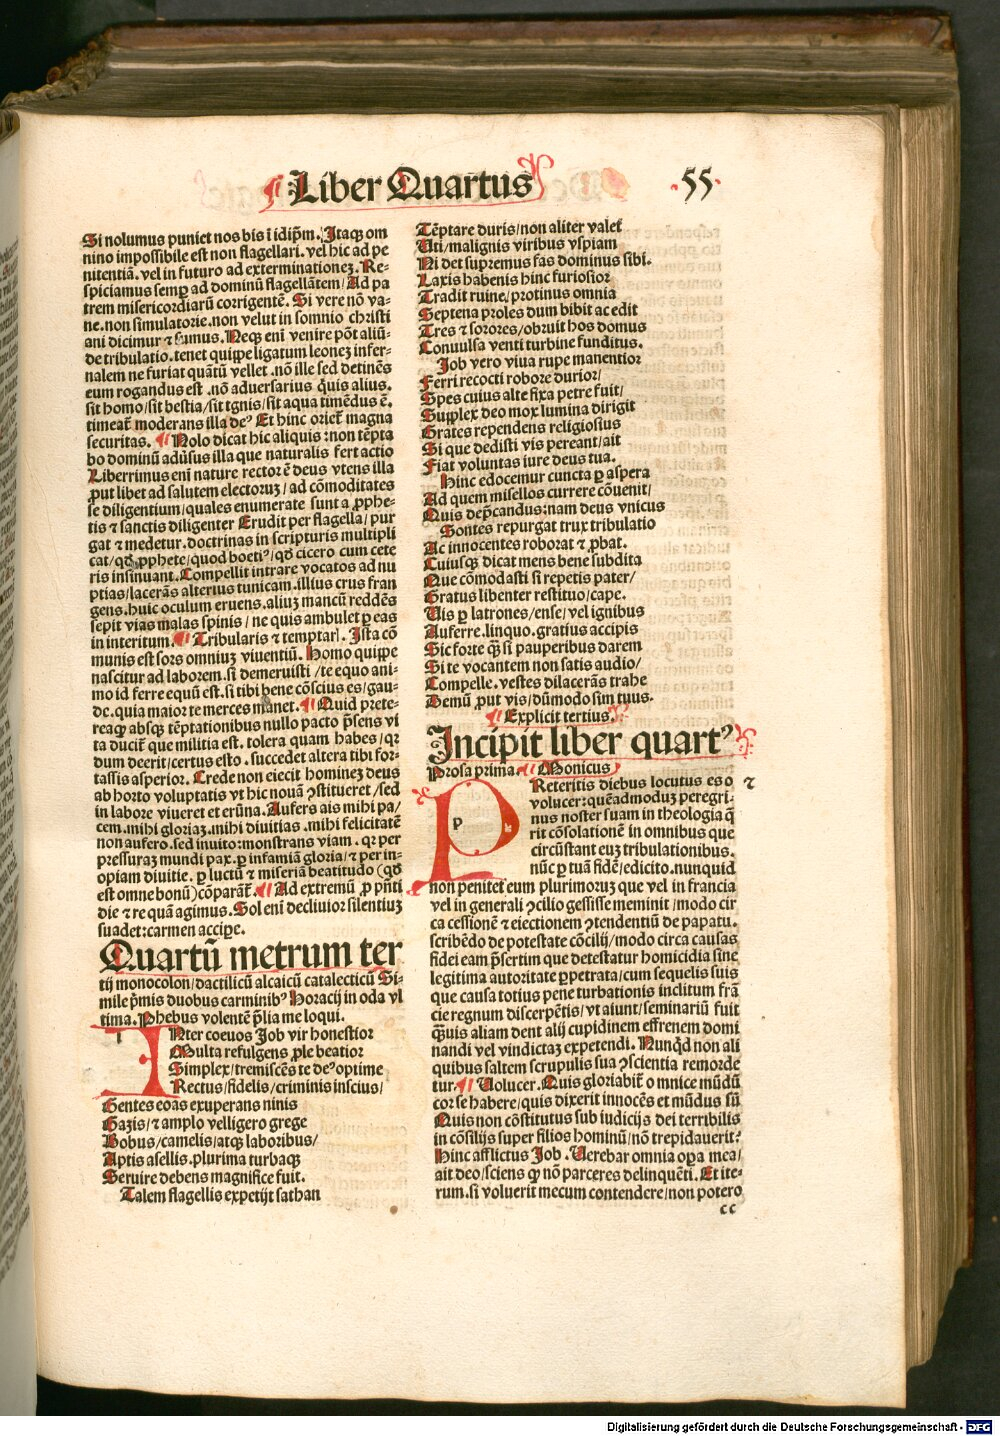 Liber Quartus
.55.
Si nolumus puniet nos bis ī idip̄m. Itaqꝫ om
nino impossibile est non flagellari. vel hic ad pe
nitentiā. vel in futuro ad exterminationeꝫ. Re-
spiciamus semꝑ ad dominū flagellātem/Ad pa
trem misericordiarū corrigentē. Si vere nō va-
ne.non simulatorie.non velut in somnio christi
ani dicimur ⁊ sumus. Neqꝫ eni venire pōt aliū-
de tribulatio.tenet quippe ligatum leoneꝫ infer-
nalem ne furiat quātū vellet .nō ille sed detinēs
eum rogandus est .nō aduersarius q̄uis alius.
sit homo/sit bestia/sit ignis/sit aqua timēdus ē.
timeat̄ moderans illa deꝰ Et hinc oriet̄ magna
securitas. ¶ Nolo dicat hic aliquis:non tēpta
bo dominū adūsus illa que naturalis fert actio
Liberrimus eni nature rector ē deus vtens illa
ꝓut libet ad salutem electoruꝫ/ad cōmoditates
se diligentium/quales enumerate sunt a ꝓphe-
tis ⁊ sanctis diligenter Erudit per flagella/pur
gat ⁊ medetur.doctrinas in scripturis multipli
cat/qđ ꝓphete/quod boetiꝰ/qđ cicero cum cete
ris insinuant.Compellit intrare vocatos ad nu
ptias/lacerās alterius tunicam.illius crus fran
gens.huic oculum eruens.aliuꝫ mancū reddēs
sepit vias malas spinis/ne quis ambulet ꝑ eas
in interitum.¶ Tribularis ⁊ temptar. Ista cō
munis est sors omniuꝫ viuentiū. Homo quippe
nascitur ad laborem.si demeruisti/te equo ani-
mo id ferre equū est.si tibi bene cōscius es/gau-
de.quia maior te merces manet.¶ Quid prete-
reaꝙ absqꝫ tēptationibus nullo pacto p̄sens vi
ta ducit̄ que militia est. tolera quam habes/qꝛ
dum deerit/certus esto .succedet altera tibi for-
tassis asperior. Crede non eiecit homineꝫ deus
ab horto voluptatis vt hic nouā ꝯstitueret/sed
in labore viueret et erūna.Aufers ais mihi pa/
cem.mihi gloriaꝫ.mihi diuitias .mihi felicitatē
non aufero.sed inuito:monstrans viam. qꝛ per
pressuraꝫ mundi pax.ꝑ infamiā gloria/⁊ per in-
opiam diuitie. ꝑ luctū ⁊ miseriā beatitudo (qđ
est omne bonū)cōparat̄.¶ Ad extremū ꝓ p̄nti
die ⁊ re quā agimus.Sol eni decliuior silentiuꝫ
suadet:carmen accipe.
Quartū metrum ter
tij monocolon/dactilicū alcaicū catalecticū Si-
mile p̄mis duobus carminibꝰ Horacij in oda vl
tima. Phebus volentē p̄lia me loqui.
INter coeuos Job vir honestior
Multa refulgens ꝓle beatior
Simplex/tremiscēs te deꝰ optime
Rectus/fidelis/criminis inscius/
Gentes eoas exuperans ninis
Gazis/⁊ amplo velligero grege
Bobus/camelis/atqꝫ laboribus/
Aptis asellis.plurima turbaqꝫ
Seruire debens magnifice fuit.
Talem flagellis expetijt sathan
Tēptare duris/non aliter valet̄
Uti/malignis viribus vspiam
Ni det supremus fas dominus sibi.
Laxis habenis hinc furiosior
Tradit ruine/protinus omnia
Septena proles dum bibit ac edit
Tres ⁊ sorores/obruit hos domus
Conuulsa venti turbine funditus.
Job vero viua rupe manentior
Ferri recocti robore durior/
Spes cuius alte fixa petre fuit/
Supplex deo mox lumina dirigit
Grates rependens religiosius
Si que dedisti vis pereant/ait
Fiat voluntas iure deus tua.
Hinc edocemur cuncta ꝑ aspera
Ad quem misellos currere cōuenit/
Quis dep̄candus:nam deus vnicus
Sontes repurgat trux tribulatio
Ac innocentes roborat ⁊ ꝓbat.
Cuiusqꝫ dicat mens bene subdita
Que cōmodasti si repetis pater/
Gratus libenter restituo/cape.
Uis ꝑ latrones/ense/vel ignibus
Auferre.linquo.gratius accipis
Sic forte qꝫ̄ si pauperibus darem
Si te vocantem non satis audio/
Compelle.vestes dilacerās trahe
Demū ꝓut vis/dūmodo sim tuus.
¶ Explicit tertius.
Incipit liber quartꝰ
Prosa prima.¶ Monicus
PReteritis diebus locutus es o ⁊
volucer:quēadmoduꝫ peregri-
nus noster suam in theologia q̄
rit cōsolationē in omnibus que
circūstant euꝫ tribulationibus.
nūc ꝑ tuā fidē/edicito.nunquid
non penitet eum plurimoruꝫ que vel in francia
vel in generali ꝯcilio gessisse meminit/modo cir
ca cessionē ⁊ eiectionem ꝯtendentiū de papatu.
scribēdo de potestate cōcilij/modo circa causas
fidei eam p̄sertim que detestatur homicidia sine
legitima autoritate ꝑpetrata/cum sequelis suis
que causa totius pene turbationis inclitum frā
cie regnum discerpētis/vt aiunt/seminariū fuit
qꝫ̄uis aliam dent alij cupidinem effrenem domi
nandi vel vindictaꝫ expetendi. Nunqđ non ali
quibus saltem scrupulis sua ꝯscientia remorde
tur.¶ Uolucer.Quis gloriabit̄ o mnice mūdū
cor se habere/quis dixerit innocēs et mūdus sū
Quis non cōstitutus sub iudicijs dei terribilis
in cōsilijs super filios hominū/nō trepidauerit?
Hinc afflictus Job .Uerebar omnia oꝑa mea/
ait deo/sciens ꝙ nō parceres delinquēti. Et ite-
rum.si voluerit mecum contendere/non potero
cc
Digitalisierung gefördert durch die Deutsche Forschungsgemeinschaft - DFG